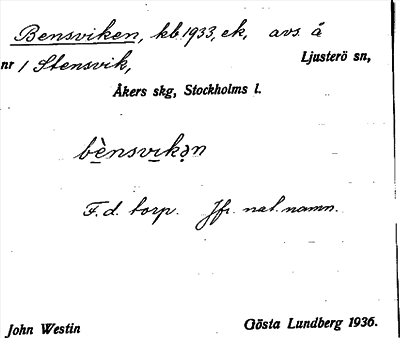 Bensviken, kb. 1933, ek, avs. å
nr 1 Stensvik, Ljusterö sn,
Åkers skg, Stockholms l.
bènsvikən
F. d. torp. Jfr. nat. namn.
John Westin Gösta Lundberg 1936.